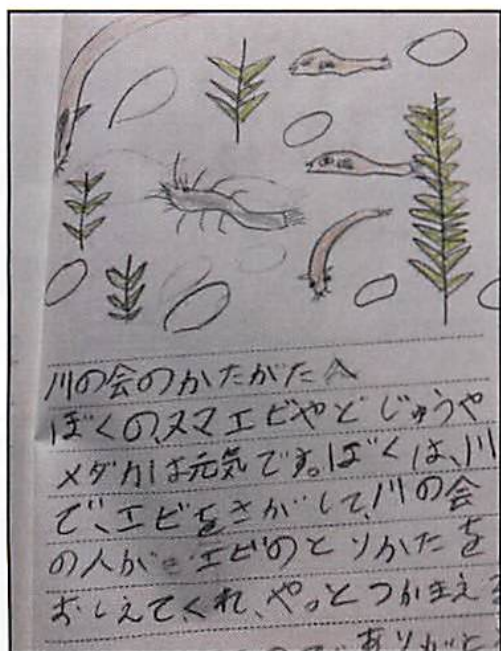 川の会のかたがたへ
ぼくの、ヌマエビやどじゅうや
メダカは元気です。ぼくは、川
で、エビをさがして、川の会
の人が エビのとりかたを
おしえて、くれ、やっとつかまえ
ありがと